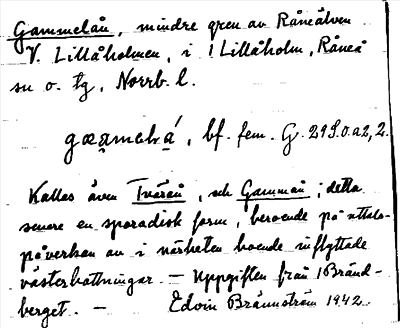 Gammelån, mindre gren av Råneälven
V. Lillåholmen, i 1 Lillåholm, Råneå
sn o. tg, Norrb. l.
gæamelrá, bf. fem. G. 29 S.o.a2,2.
Kallas även Tvärån, och Gammån; detta
senare en sporadisk form, beroende på uttals-
påverkan av i närheten boende inflyttade
västerbottningar. — Uppgiften från 1 Bränd-
berget. — Edvin Brännström 1942.